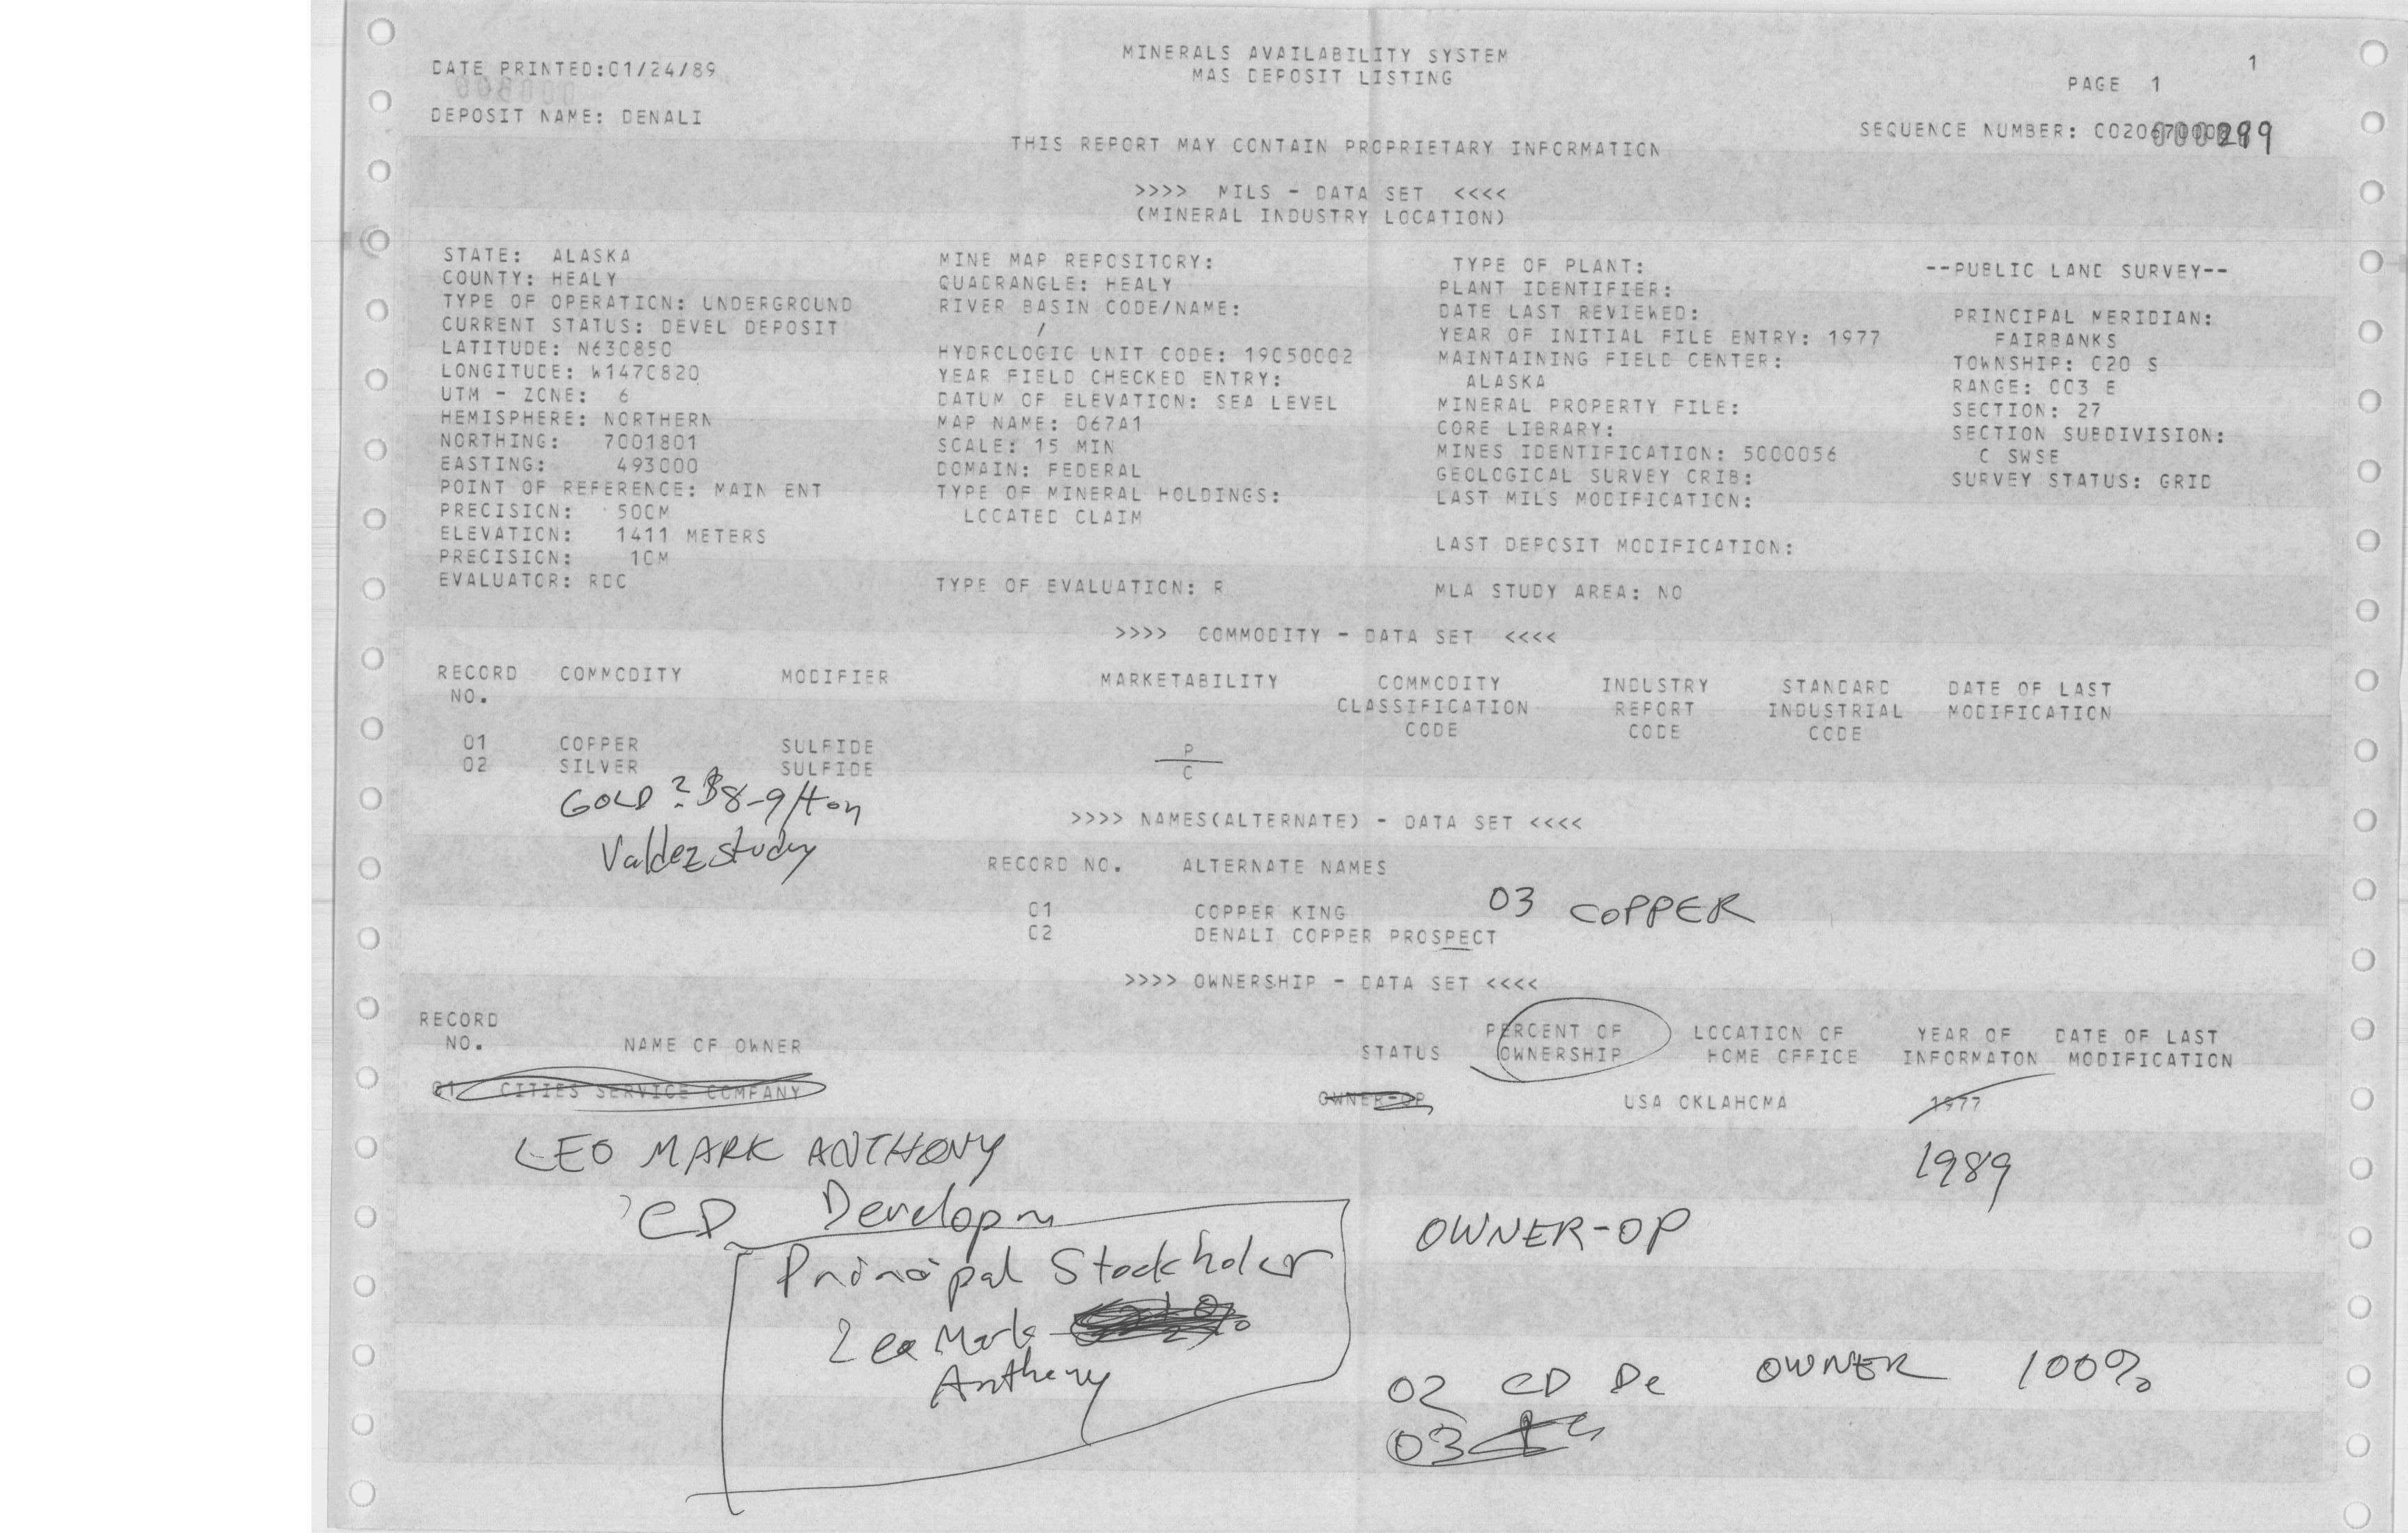 MINERALS AVAILABILITY SYSTEM
MAS DEPOSIT LISTING
DATE PRINTED:01/24/89
1
PAGE 1
DEPOSIT NAME: DENALI
SEQUENCE NUMBER:
299
THIS REPORT MAY CONTAIN PROPRIETARY INFORMATION
>>>> MILS - DATA SET <<<<
(MINERAL INDUSTRY LOCATION)
STATE: ALASKA
COUNTY: HEALY
TYPE OF OPERATION: UNDERGROUND
CURRENT STATUS: DEVEL DEPOSIT
LATITUDE: N630850
LONGITUDE: W1470820
UTM - ZONE: 6
HEMISPHERE: NORTHERN
NORTHING: 7001801
EASTING: 493000
POINT OF REFERENCE: MAIN ENT
PRECISION: 500M
ELEVATION: 1411 METERS
PRECISION: 10M
EVALUATOR: RDC
MINE MAP REPOSITORY:
QUADRANGLE: HEALY
RIVER BASIN CODE/NAME:
/
HYDROLOGIC UNIT CODE: 19050002
YEAR FIELD CHECKED ENTRY:
DATUM OF ELEVATION: SEA LEVEL
MAP NAME: 067A1
SCALE: 15 MIN
DOMAIN: FEDERAL
TYPE OF MINERAL HOLDINGS:
LOCATED CLAIM
TYPE OF EVALUATION: R
TYPE OF PLANT:
PLANT IDENTIFIER:
DATE LAST REVIEWED:
YEAR OF INITIAL FILE ENTRY: 1977
MAINTAINING FIELD CENTER:
ALASKA
MINERAL PROPERTY FILE:
CORE LIBRARY:
MINES IDENTIFICATION: 5000056
GEOLOGICAL SURVEY CRIB:
LAST MILS MODIFICATION:
LAST DEPOSIT MODIFICATION:
MLA STUDY AREA: NO
--PUBLIC LAND SURVEY--
PRINCIPAL MERIDIAN:
FAIRBANKS
TOWNSHIP: 020 S
RANGE: 003 E
SECTION: 27
SECTION SUBDIVISION:
C SWSE
SURVEY STATUS: GRID
>>>> COMMODITY - DATA SET <<<<
RECORD NO. COMMODITY MODIFIER MARKETABILITY COMMODITY CLASSIFICATION CODE INDUSTRY REPORT CODE STANDARD INDUSTRIAL CODE DATE OF LAST MODIFICATION
01 COPPER SULFIDE P
02 SILVER SULFIDE C
GOLD ? $8-9/ton
Valdez study
>>>> NAMES(ALTERNATE) - DATA SET <<<<
RECORD NO. ALTERNATE NAMES
01 COPPER KING
02 DENALI COPPER PROSPECT
03 COPPER
>>>> OWNERSHIP - DATA SET <<<<
RECORD NO. NAME OF OWNER STATUS PERCENT OF OWNERSHIP LOCATION OF HOME OFFICE YEAR OF INFORMATON DATE OF LAST MODIFICATION
01 CITIES SERVICE COMPANY OWNER-OP USA OKLAHOMA 1977
LEO MARK ANTHONY
1989
CD Developm
OWNER-OP
Principal Stockholer
Leo Mark
Anthony
02 CD De OWNER 100%
03